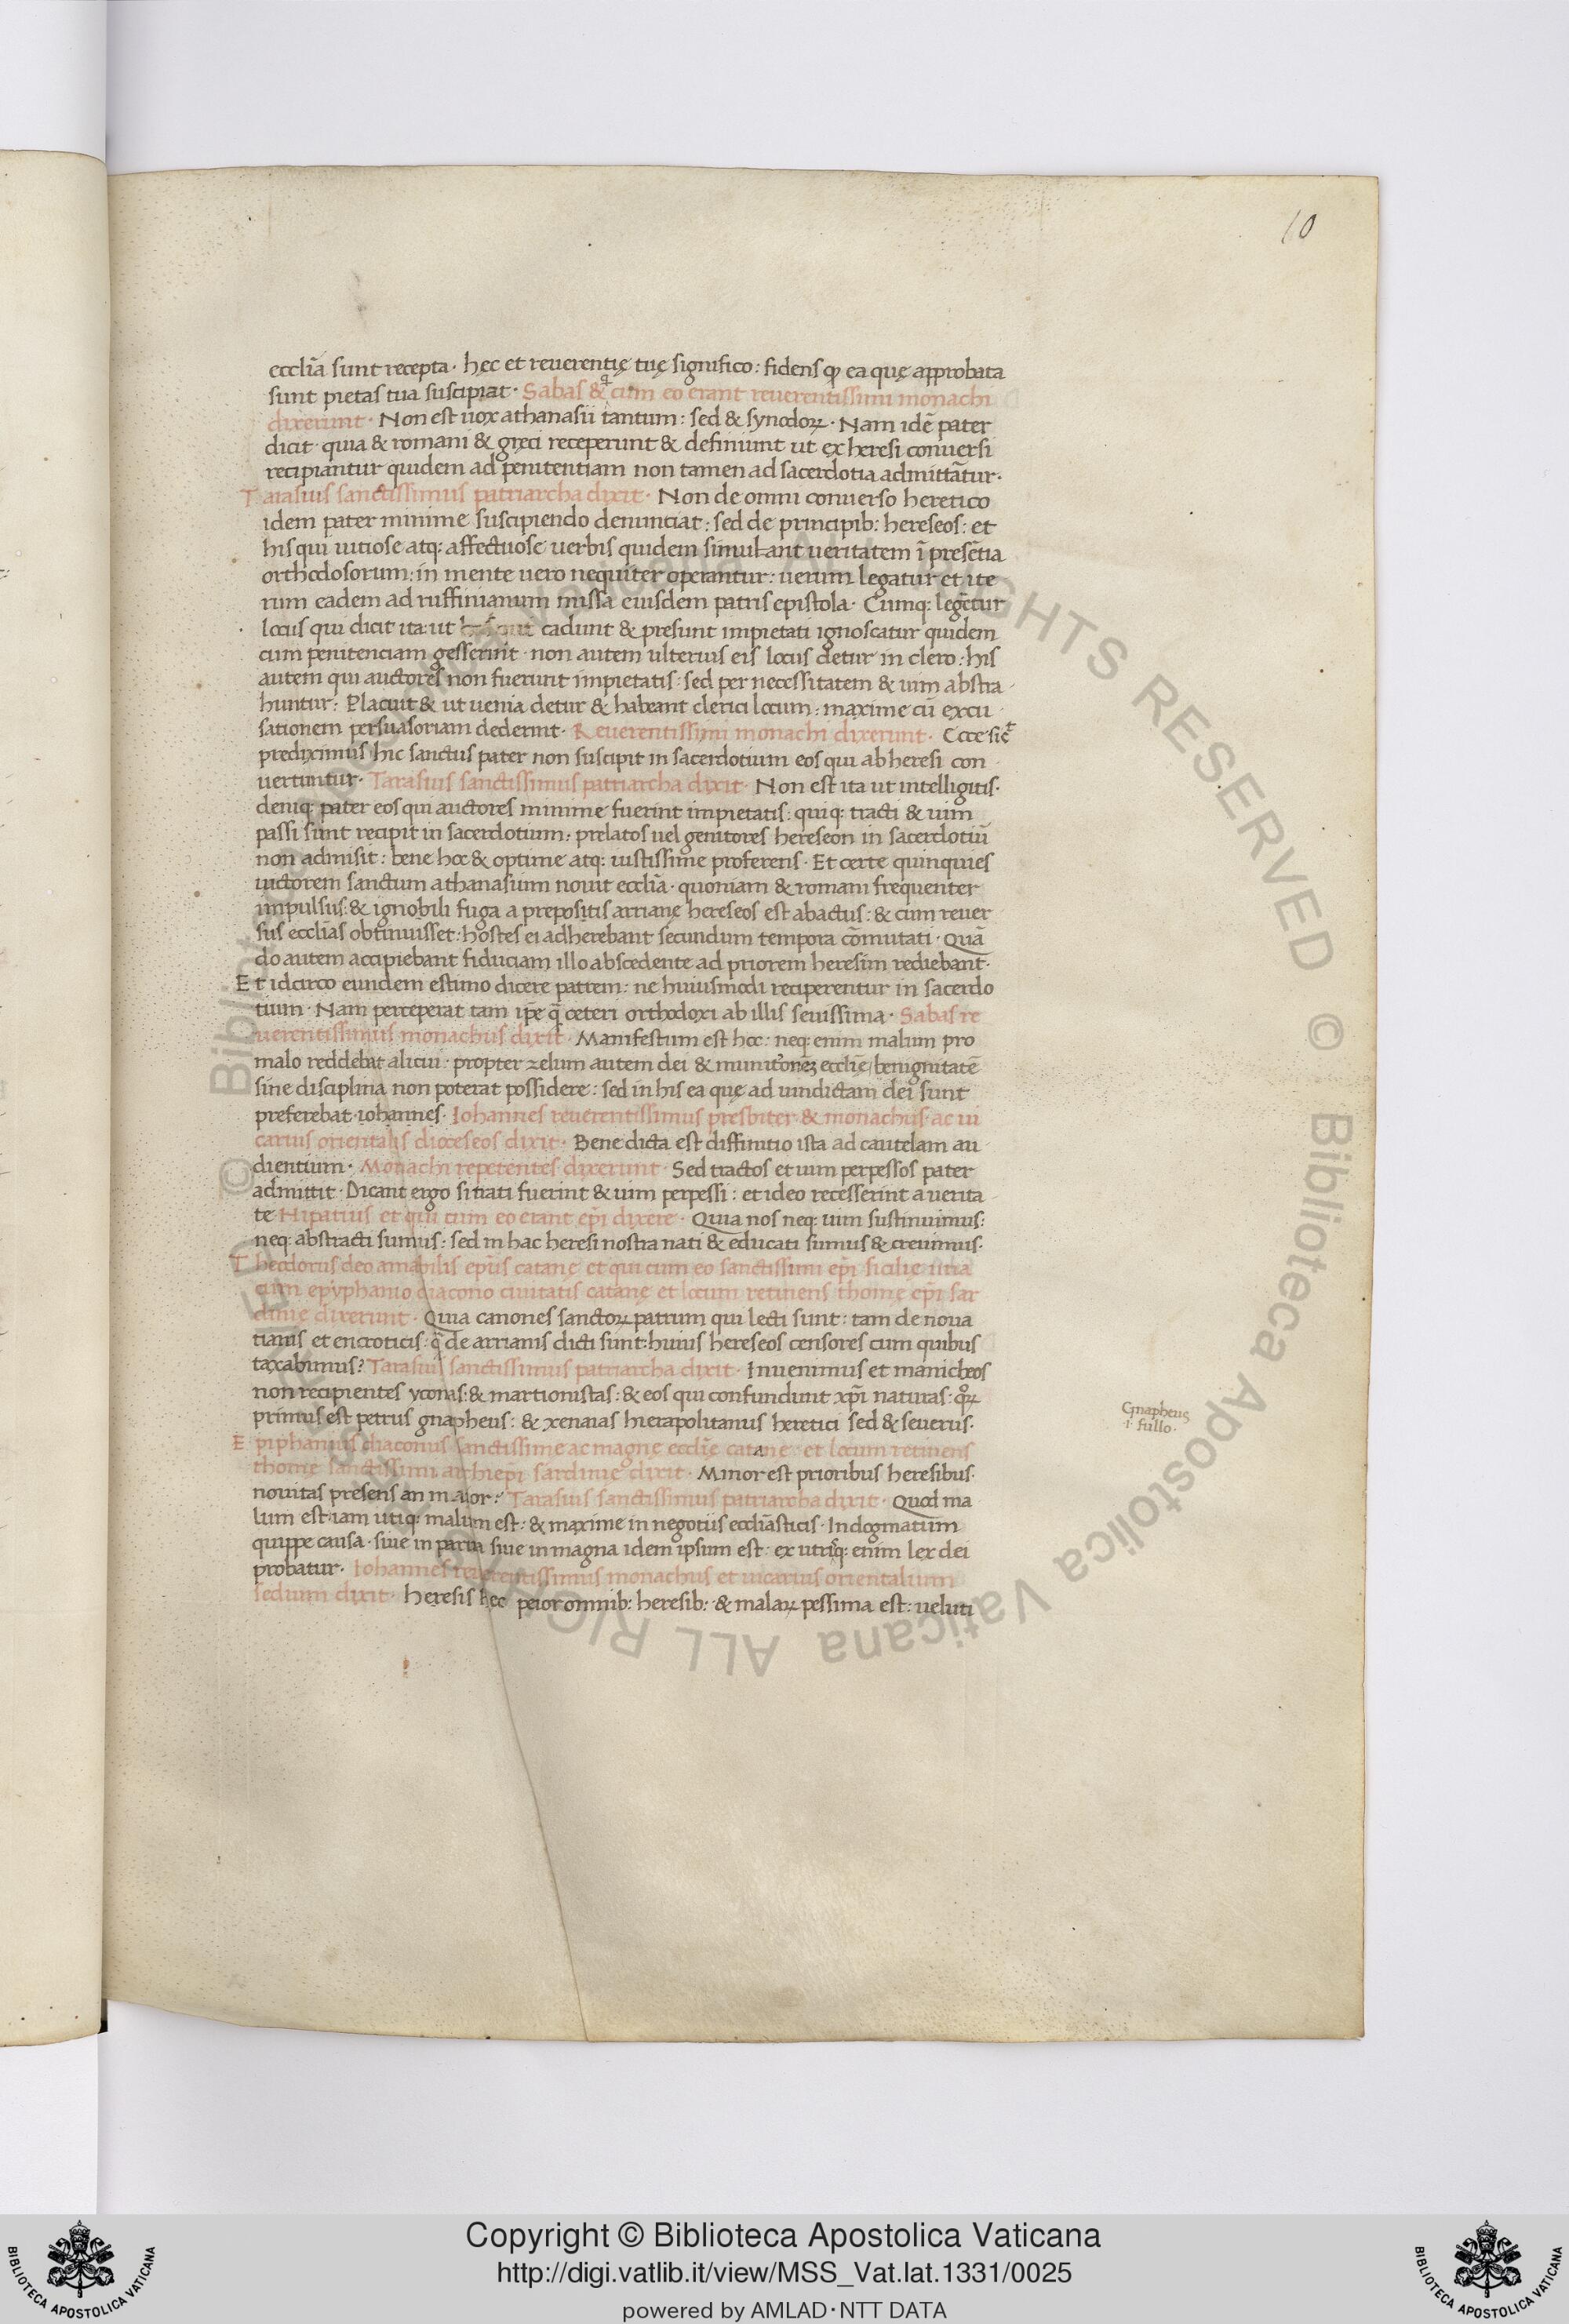 10
eccl̄ia sunt recepta · hęc et reuerentię tuę significo : fidens ꝙ ea quę approbata
sunt pietas tua suscipiat · Sabas & q̇ cum eo erant reuerentissimi monachi
dixerunt · Non est uox athanasii tantum : sed & synodoꝝ · Nam idē pater
dicit · quia & romani & gręci receperunt & definiunt ut ex heresi conuersi
recipiantur quidem ad penitentiam non tamen ad sacerdotia admittātur ·
Tarasius sanctissimus patriarcha dixit · Non de omni conuerso heretico
idem pater minime suscipiendo denunciat : sed de principib: hereseos : et
his qui uitiose atq: affectuose uerbis quidem simulant ueritatem ī presētia
orthodosorum : in mente uero nequiter operantur : uerum legatur et ite
rum eadem ad ruffinianum missa eiusdem patris epistola · Cumq: legētur
locus qui dicit ita ut cadunt & presunt impietati ignoscatur quidem
cum penitenciam gesserint · non autem ulterius eis locus detur in clero : his
autem qui auctores non fuerunt impietatis : sed per necessitatem & uim abstra
huntur : Placuit & ut uenia detur & habeant clerici locum : maxime cū excu
sationem persuasoriam dederint · Reuerentissimi monachi dixerunt · Ecce sic̄
prediximus hic sanctus pater non suscipit in sacerdotium eos qui ab heresi con
uertuntur · Tarasius sanctissimus patriarcha dixit · Non est ita ut intelligitis ·
deniq: pater eos qui auctores minime fuerint impietatis : quiq: tracti & uim
passi sunt recipit in sacerdotium : prelatos uel genitores hereseon in sacerdotiū
non admisit : bene hoc & optime atq: iustissime proferens · Et certe quinquies
uictorem sanctum athanasium nouit eccl̄ia · quoniam & romam frequenter
impulsus : & ignobili fuga a prepositis arrianę hereseos est abactus : & cum reuer
sus eccl̄ias obtinuisset : hostes ei adherebant secundum tempora cōmutati · Quā
do autem accipiebant fiduciam illo abscedente ad priorem heresim rediebant ·
Et idcirco eundem estimo dicere patrem : ne huiusmodi reciperentur in sacerdo
tium · Nam perceperat tam ip̄e q̄ ceteri orthodoxi ab illis seuissima · Sabas re
uerentissimus monachus dixit · Manifestum est hoc : neq: enim malum pro
malo reddebat alicui · propter zelum autem dei & munitionēz eccl̄ię benignitatē
sine disciplina non poterat possidere : sed in his ea quę ad uindictam dei sunt
preferebat · iohannes · Iohannes reuerentissimus presbiter & monachus · ac ui
carius orientalis dioceseos dixit · Bene dicta est diffinitio ista ad cautelam au
dientium · Monachi repetentes dixerunt · Sed tractos et uim perpessos pater
admittit · Dicant ergo si trati fuerint & uim perpessi : et ideo recesserint a uerita
te Hipatius et qui cum eo erant ep̄i dixere · Quia nos neq: uim sustinuimus :
neq: abstracti sumus : sed in hac heresi nostra nati & educati sumus & creuimus ·
Theodorus deo amabilis ep̄us catanę et qui cum eo sanctissimi ep̄i sicilię una
cum epyphanio diacono ciuitatis catanę et locum retinens thomę ep̄i sar
dinię dixerunt · Quia canones sanctoꝝ patrum qui lecti sunt : tam de noua
tianis et encroticis : q̄ de arrianis dicti sunt : huius hereseos censores cum quibus
taxabimus ? Tarasius sanctissimus patriarcha dixit · Inuenimus et manicheos
non recipientes yconas : & martionistas : & eos qui confundunt xp̄i naturas : qͦꝝ
primus est petrus gnapheus : & xenaias hierapolitanus heretici sed & seuerus ·
Epiphanius diaconus sanctissime ac magnę eccl̄ię catane : et locum retinens
thomę sanctissimi archiep̄i sardinię dixit · Minor est prioribus heresibus ·
nouitas presens an maior : Tarasius sanctissimus patriarcha dixit · Quod ma
lum est iam utiq: malum est : & maxime in negotiis eccl̄iasticis · In dogmatum
quippe causa · siue in parua siue in magna idem ipsum est : ex utrisq: enim lex dei
probatur · Iohannes reuerentissimus monachus et uicarius orientalium
sedium dixit · Heresis hęc peior omnib: heresib: & malaꝝ pessima est : ueluti
Gnapheus
·i· fullo ·
© Biblioteca Apostolica Vaticana ALL RIGHTS RESERVED © Biblioteca Apostolica Vaticana ALL RIGHTS RESERVED
Copyright © Biblioteca Apostolica Vaticana
http://digi.vatlib.it/view/MSS_Vat.lat.1331/0025
powered by AMLAD·NTT DATA
BIBLIOTECA APOSTOLICA VATICANA
BIBLIOTECA APOSTOLICA VATICANA